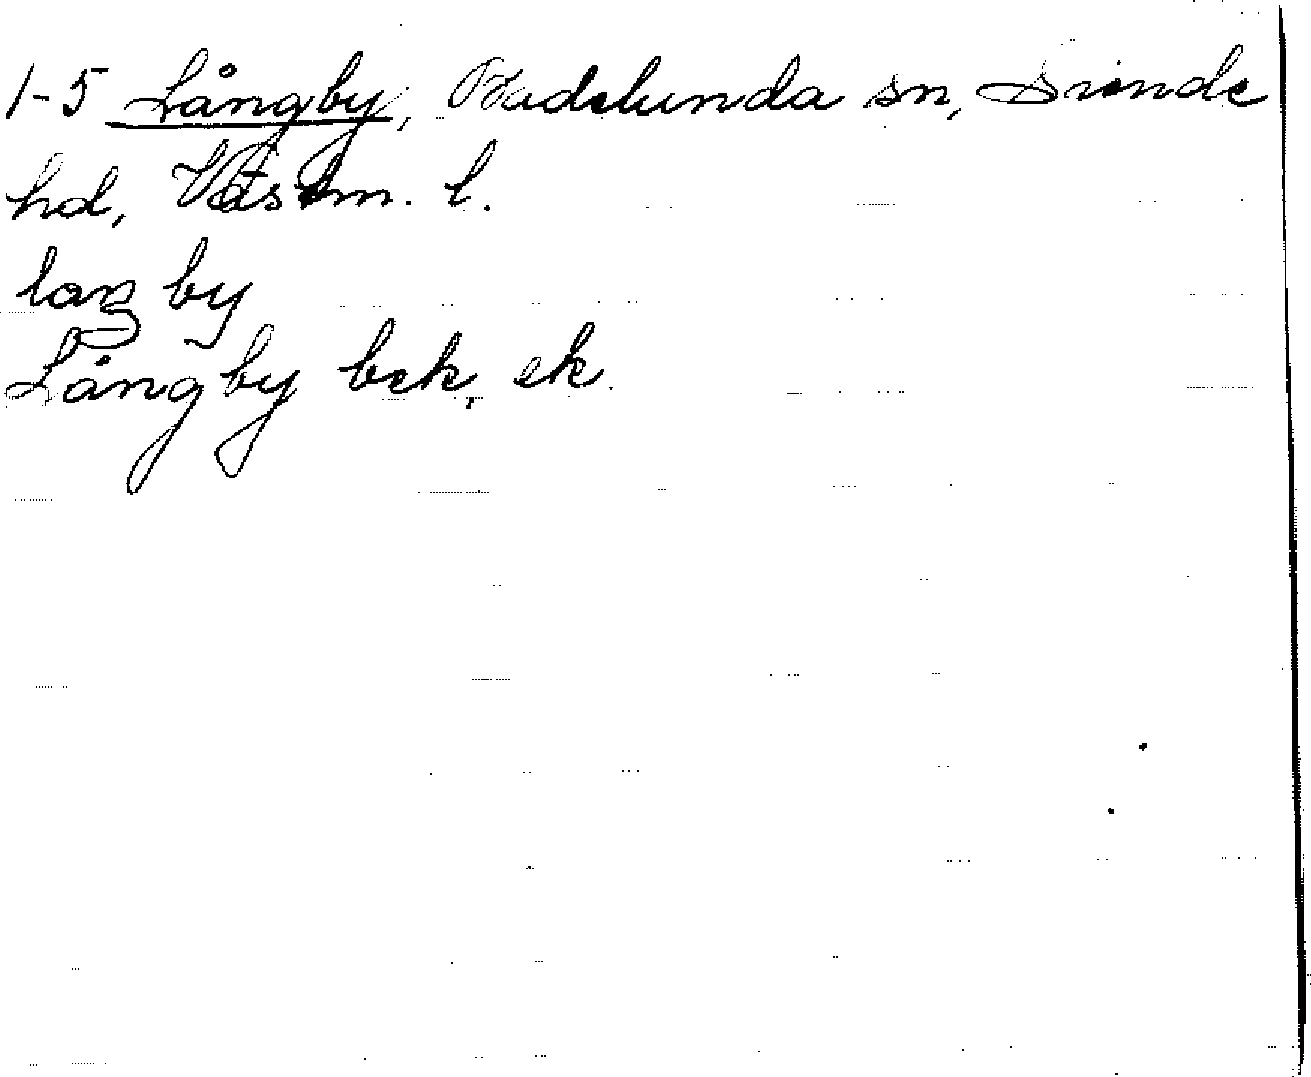 1-5 Långby, Badelunda sn, Siende
hd, Västm. l.
laŋ by
Långby bek, ek.